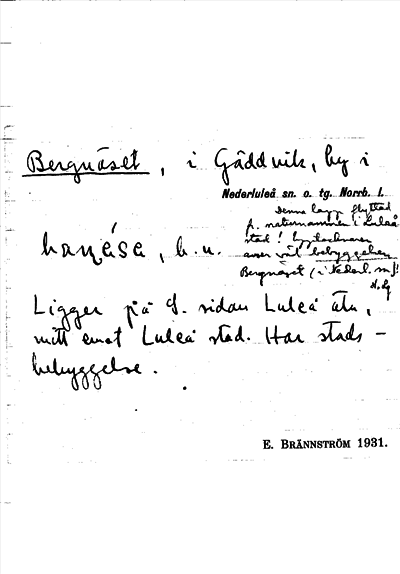 Bergnäset, i Gäddvik, by i
Nederluleå sn. o. tg. Norrb. l.
Denna lapp flyttad
fr. naturnamnen i Luleå
stad!
avser väl bebyggelsen
Bergnäset (i Nederl. sn)!
, b. u.
Ligger på S. sidan Luleå älv,
mitt emot Luleå stad. Har stads-
bebyggelse.
E. BRÄNNSTRÖM 1931.